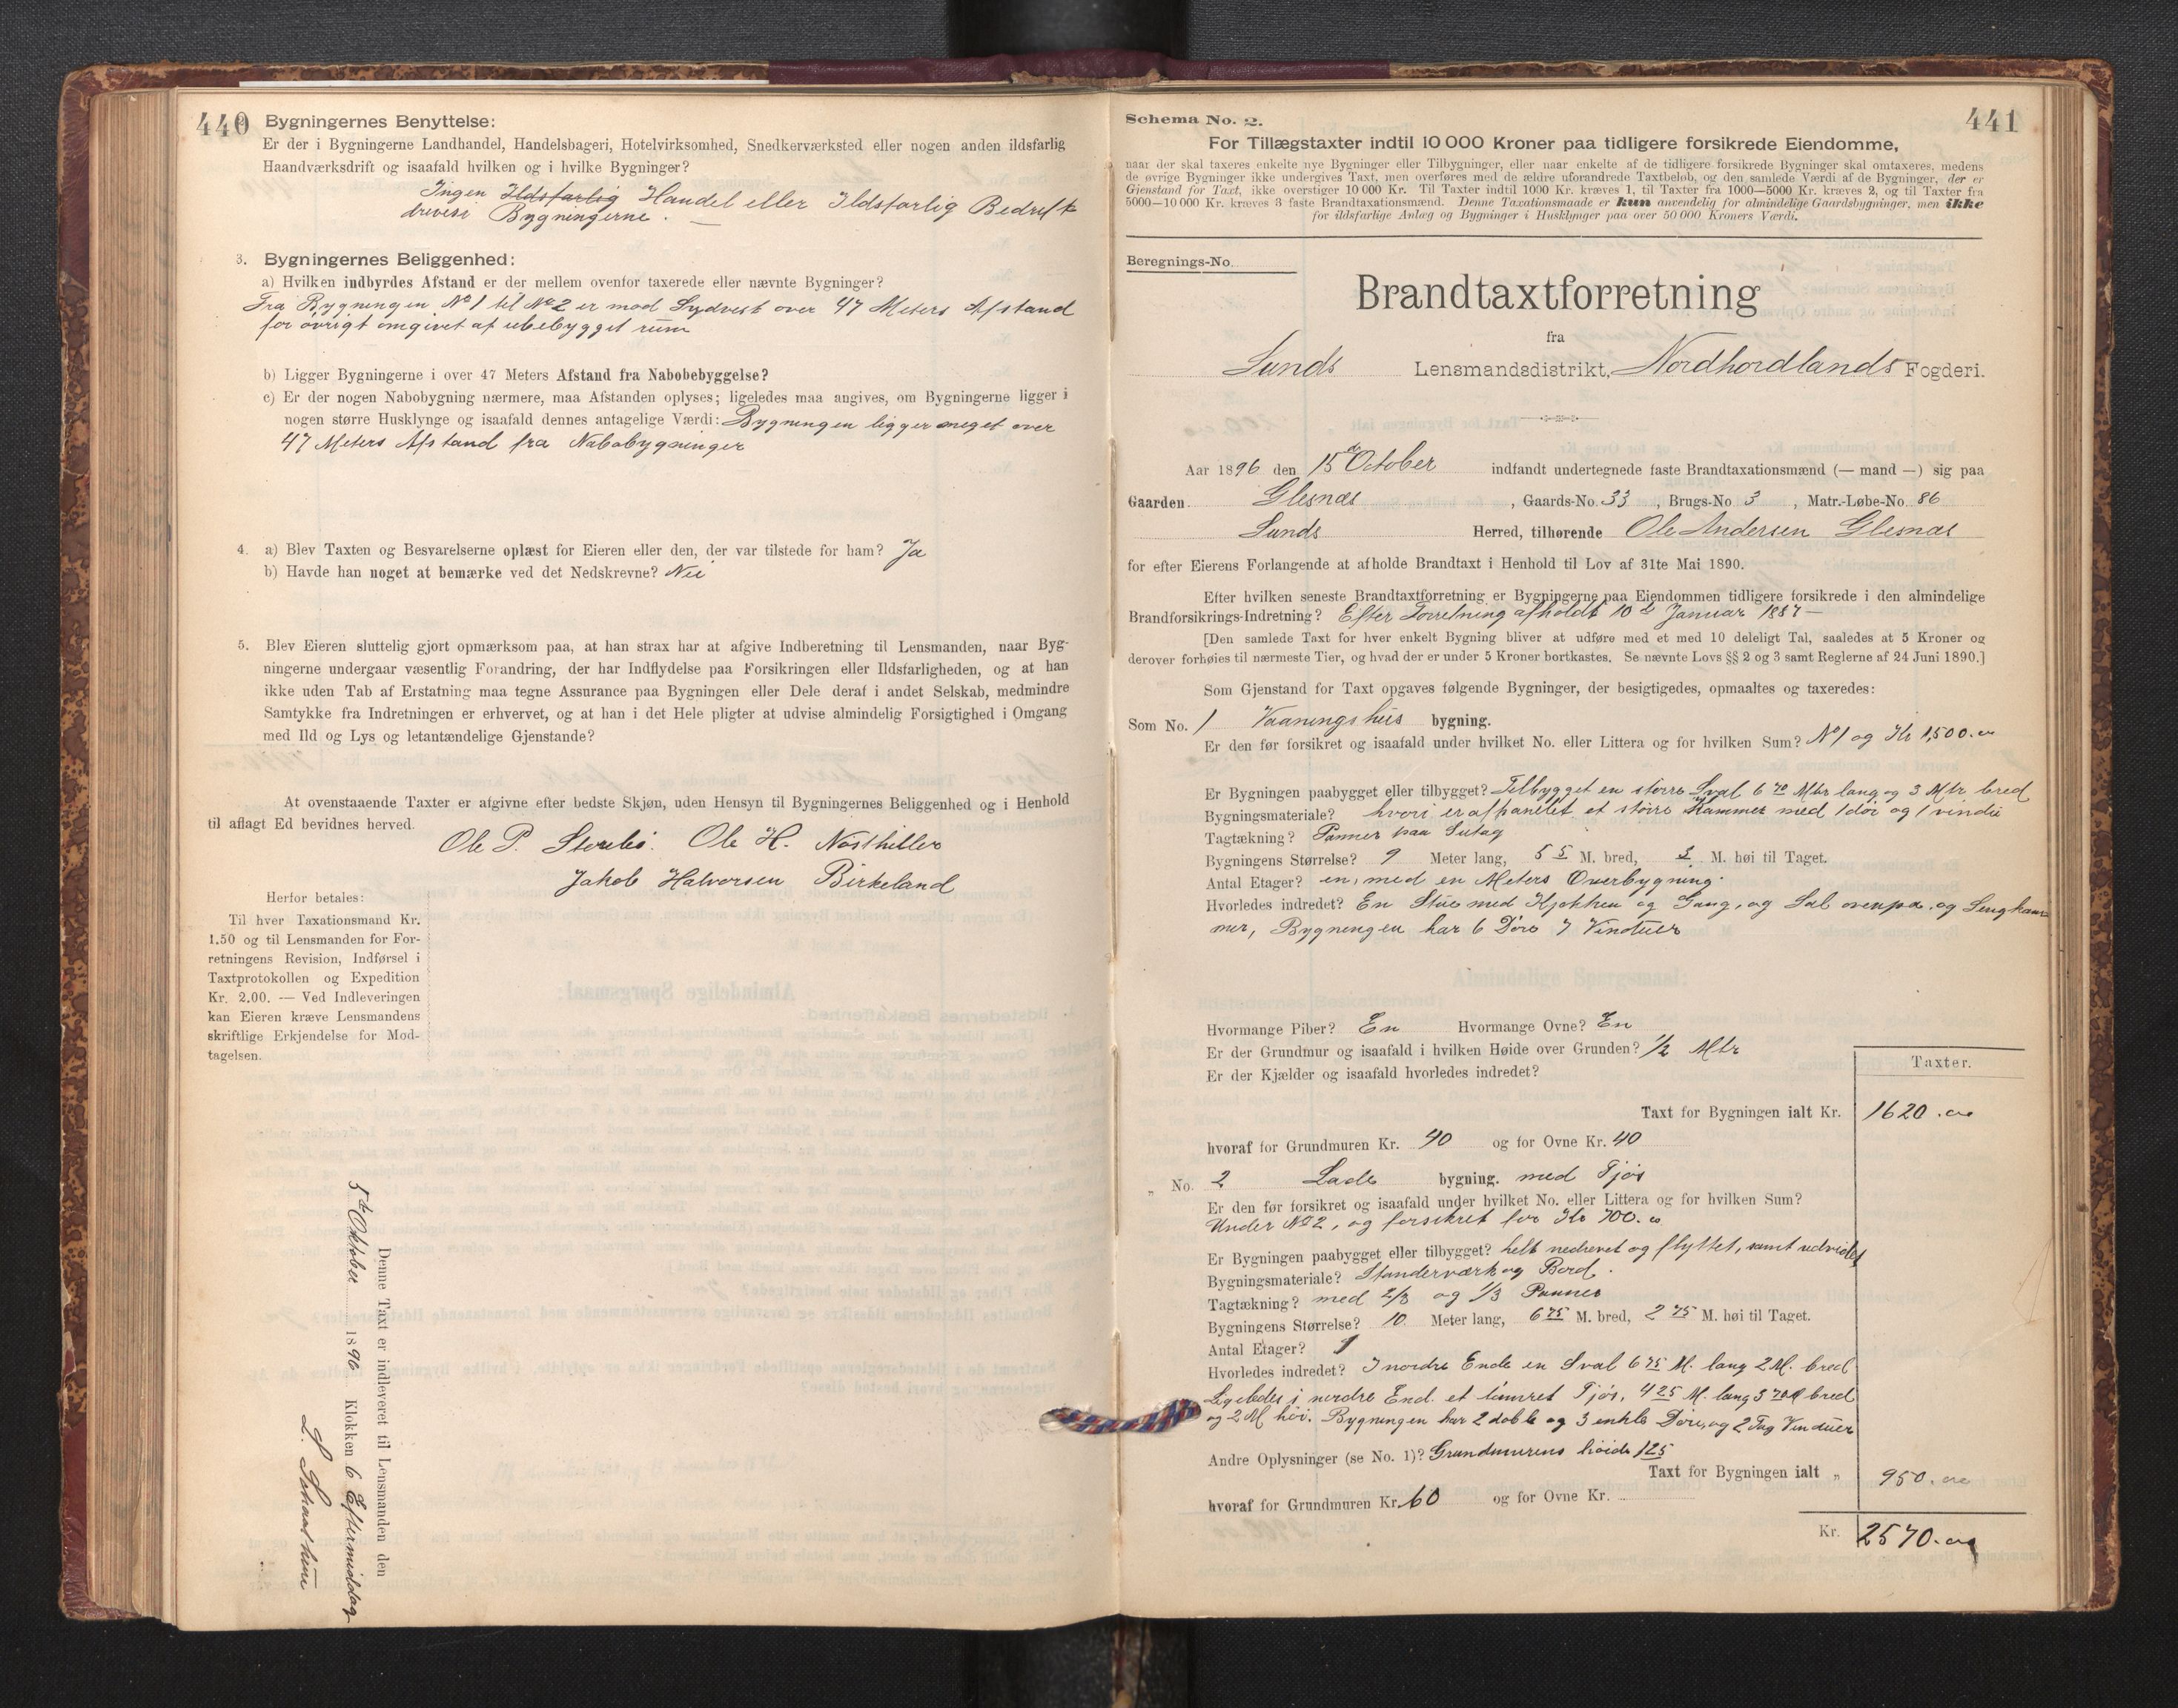 440
2. Bygningernes Benyttelse:
Er der i Bygningerne Landhandel, Handelsbageri, Hotelvirksomhed, Snedkerværksted eller nogen anden ildsfarlig
Haandværksdrift og isaafald hvilken og i hvilke Bygninger?
Ingen Ildsfarlig Handel eller Ildsfarlig Bedrift
drives i Bygningerne.
3. Bygningernes Beliggenhed:
a) Hvilken indbyrdes Afstand er der mellem ovenfor taxerede eller nævnte Bygninger?
Fra Bygningen No 1 til No 2 er mod Sydvest over 47 Meters Afstand
for øvrigt omgivet af ubebygget rum
b) Ligger Bygningerne i over 47 Meters Afstand fra Nabobebyggelse?
c) Er der nogen Nabobygning nærmere, maa Afstanden oplyses; ligeledes maa angives, om Bygningerne ligger i
nogen større Husklynge og isaafald dennes antagelige Værdi: Bygningen ligger meget over
47 Meters Afstand fra Nabobygninger
4. a) Blev Taxten og Besvarelserne oplæst for Eieren eller den, der var tilstede for ham? Ja
b) Havde han noget at bemærke ved det Nedskrevne? Nei
5. Blev Eieren sluttelig gjort opmærksom paa, at han strax har at afgive Indberetning til Lensmanden, naar Byg-
ningerne undergaar væsentlig Forandring, der har Indflydelse paa Forsikringen eller Ildsfarligheden, og at han
ikke uden Tab af Erstatning maa tegne Assurance paa Bygningen eller Dele deraf i andet Selskab, medmindre
Samtykke fra Indretningen er erhvervet, og at han i det Hele pligter at udvise almindelig Forsigtighed i Omgang
med Ild og Lys og letantændelige Gjenstande?
At ovenstaaende Taxter er afgivne efter bedste Skjøn, uden Hensyn til Bygningernes Beliggenhed og i Henhold
til aflagt Ed bevidnes herved.
Ole P. Storebø. Ole H.
Jakob Halvorsen Birkeland
Herfor betales:
Til hver Taxationsmand Kr.
1.50 og til Lensmanden for For-
retningens Revision, Indførsel i
Taxtprotokollen og Expedition
Kr. 2.00. — Ved Indleveringen
kan Eieren kræve Lensmandens
skriftlige Erkjendelse for Mod-
tagelsen.
Denne Taxt er indleveret til Lensmanden den
5te Oktober 1896 Klokken 6 Eftermiddag
441
Schema No. 2.
For Tillægstaxter indtil 10 000 Kroner paa tidligere forsikrede Eiendomme,
naar der skal taxeres enkelte nye Bygninger eller Tilbygninger, eller naar enkelte af de tidligere forsikrede Bygninger skal omtaxeres, medens
de øvrige Bygninger ikke undergives Taxt, men overføres med de ældre uforandrede Taxtbeløb, og den samlede Værdi af de Bygninger, der er
Gjenstand for Taxt, ikke overstiger 10 000 Kr. Til Taxter indtil 1000 Kr. kræves 1, til Taxter fra 1000—5000 Kr. kræves 2, og til Taxter fra
5000—10 000 Kr. kræves 3 faste Brandtaxationsmænd. Denne Taxationsmaade er kun anvendelig for almindelige Gaardsbygninger, men ikke
for ildsfarlige Anlæg og Bygninger i Husklynger paa over 50 000 Kroners Værdi.
Beregnings-No.
Brandtaxtforretning
fra
Sunds Lensmandsdistrikt, Nordhordlands Fogderi.
Aar 1896 den 15de October indfandt undertegnede faste Brandtaxationsmænd (— mand —) sig paa
Gaarden Glesnæs, Gaards-No. 33, Brugs-No. 3, Matr.-Løbe-No. 86
Sunds Herred, tilhørende Ole Andersen Glesnæs
for efter Eierens Forlangende at afholde Brandtaxt i Henhold til Lov af 31te Mai 1890.
Efter hvilken seneste Brandtaxtforretning er Bygningerne paa Eiendommen tidligere forsikrede i den almindelige
Brandforsikrings-Indretning? Efter Forretning afholdt 10de Januar 1887 —
[Den samlede Taxt for hver enkelt Bygning bliver at udføre med et med 10 deleligt Tal, saaledes at 5 Kroner og
derover forhøies til nærmeste Tier, og hvad der er under 5 Kroner bortkastes. Se nævnte Lovs §§ 2 og 3 samt Reglerne af 24 Juni 1890.]
Som Gjenstand for Taxt opgaves følgende Bygninger, der besigtigedes, opmaaltes og taxeredes:
Som No. 1 Vaaningshus bygning.
Er den før forsikret og isaafald under hvilket No. eller Littera og for hvilken Sum? No 1 og Kr 1,500.
Er Bygningen paabygget eller tilbygget? Tilbygget en større Sval 6 70 Mtr lang og 3 Mtr bred
Bygningsmateriale? hvori er afpanelet et større Kammer med 1 dør og 1 vindu
Tagtækning? Panner paa Sutag
Bygningens Størrelse? 9 Meter lang, 5 5 M. bred, 3 M. høi til Taget.
Antal Etager? en, med en Meters Overbygning.
Hvorledes indredet? En Stue med Kjøkken og Gang, og Sal ovenpa og Sengkam-
mer, Bygningen har 6 Døre 7 Vinduer
Hvormange Piber? En Hvormange Ovne? En
Er der Grundmur og isaafald i hvilken Høide over Grunden? 1/2 Mtr
Er der Kjælder og isaafald hvorledes indredet?
Taxter.
Taxt for Bygningen ialt Kr. 1620.
hvoraf for Grundmuren Kr. 40 og for Ovne Kr. 40
„ No. 2 Lade bygning. med Fjøs
Er den før forsikret og isaafald under hvilket No. eller Littera og for hvilken Sum?
Under No 2, og forsikret for Kr 700.
Er Bygningen paabygget eller tilbygget? helt nedrevet og flyttet, samt udvidet
Bygningsmateriale? Standerværk og Bord.
Tagtækning? med 2/3 og 1/3 Panner
Bygningens Størrelse? 10 Meter lang, 6 75 M. bred, 2 75 M. høi til Taget.
Antal Etager? 1
Hvorledes indredet? I nordre Ende en Sval 6 75 M. lang 2 M. bred
Ligeledes i nordre End. et tømret Fjøs, 4 25 M. lang 3 70 M bred
og 2 M høi. Bygningen har 2 doble og 3 enkle Døre, og 2 Fag Vinduer
Andre Oplysninger (se No. 1)? Grundmurens høide 1 25
Taxt for Bygningen ialt „ 950.
hvoraf for Grundmuren Kr. 60 og for Ovne Kr.
Kr. 2570.